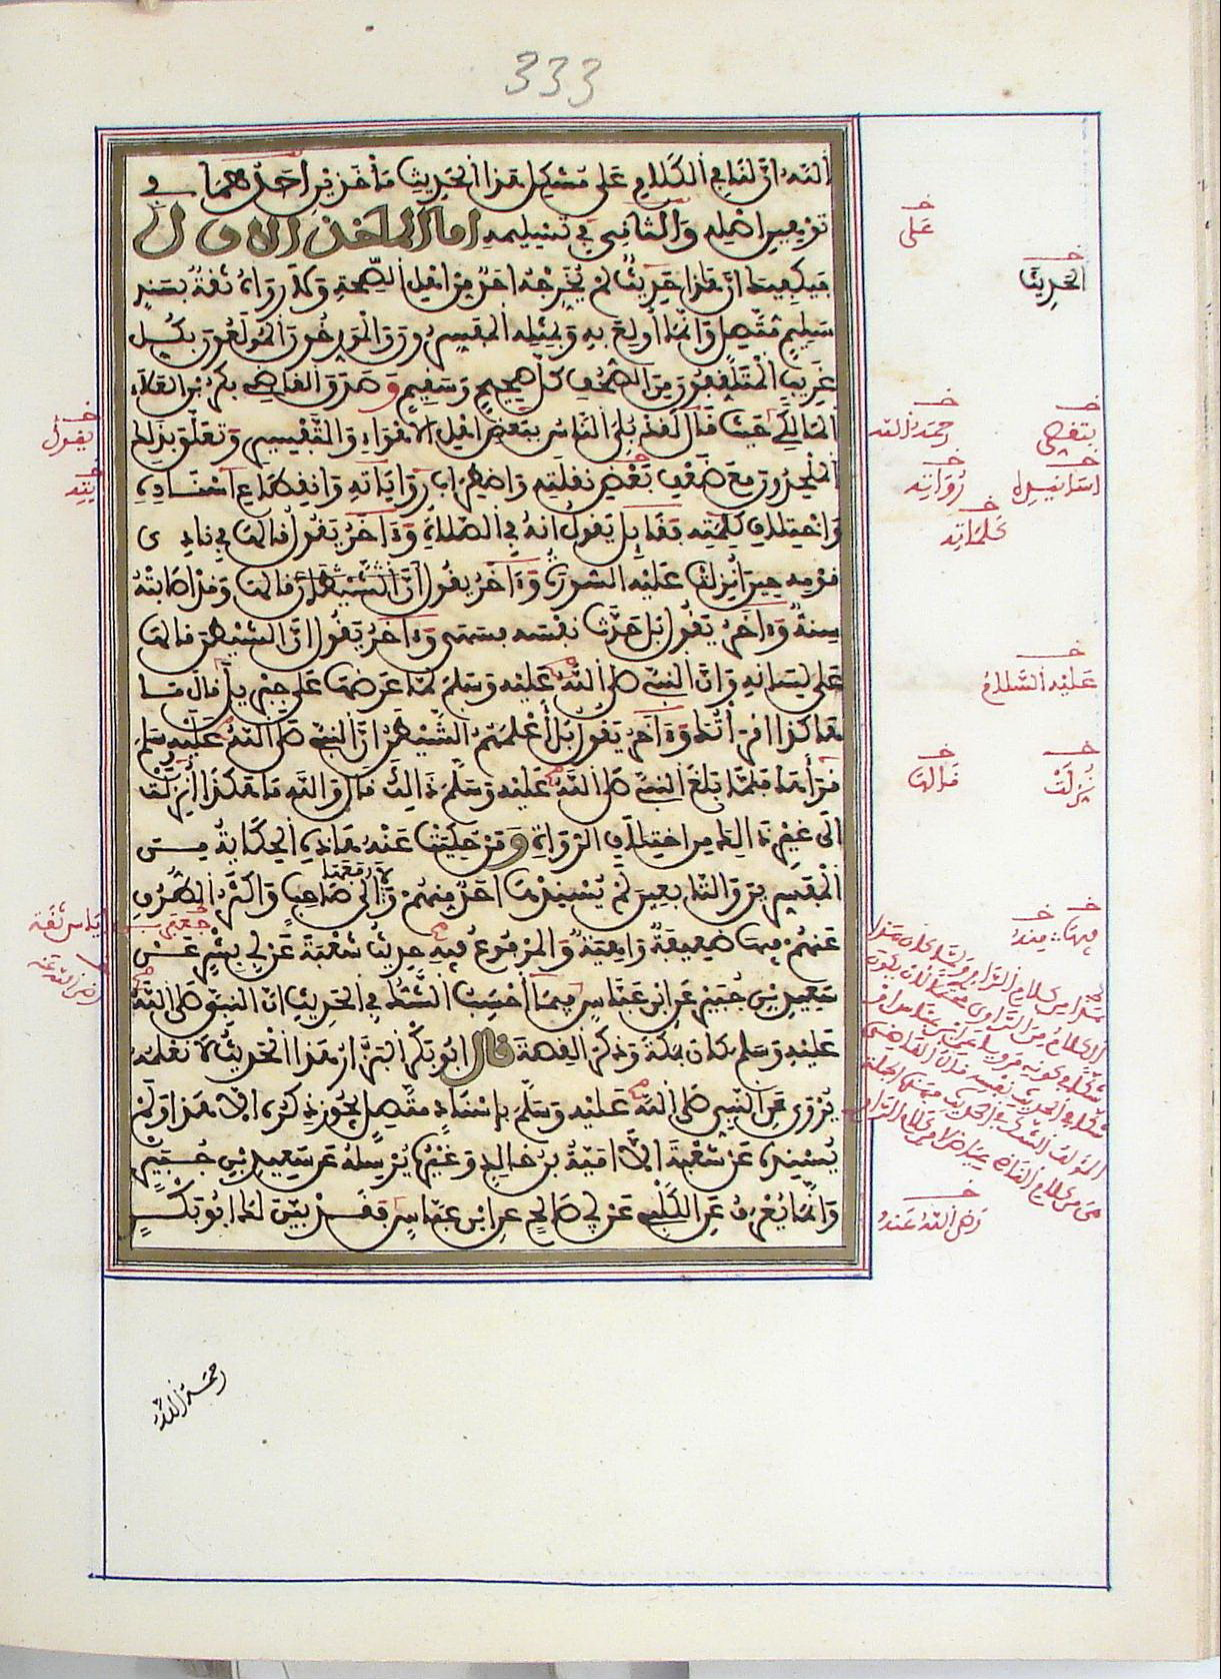 333
اَللَّهُ أَنَّ لَنَا فِي الْكَلَامِ عَلَى مُشْكِلِ هَذَا الْحَدِيثِ مَأْخَذَيْنِ أَحَدُهُمَا فِي
تَوْهِينِ أَصْلِهِ وَالثَّانِي فِي تَسْلِيمِهِ أَمَّا الْمَأْخَذُ الْأَوَّلُ
فَيَكْفِيكَ أَنَّ هَذَا حَدِيثٌ لَمْ يُخَرِّجْهُ أَحَدٌ مِنْ أَهْلِ الصِّحَّةِ وَلَا رَوَاهُ ثِقَةٌ بِسَنَدٍ
سَلِيمٍ مُتَّصِلٍ وَإِنَّمَا أُولِعَ بِهِ وَبِمِثْلِهِ الْمُفَسِّرُونَ وَالْمُؤَرِّخُونَ الْمُولَعُونَ بِكُلِّ
غَرِيبٍ الْمُتَلَقِّفُونَ مِنَ الصُّحُفِ كُلَّ صَحِيحٍ وَسَقِيمٍ وَصَدَقَ الْقَاضِي بَكْرُ بْنُ الْعَلَاءِ
الْمَالِكِيُّ حَيْثُ قَالَ لَقَدْ بُلِيَ النَّاسُ بِبَعْضِ أَهْلِ الْأَهْوَاءِ وَالتَّفْسِيرِ وَتَعَلَّقَ بِذَلِكَ
الْمُلْحِدُونَ مَعَ ضَعْفِ بَعْضِ نَقَلَتِهِ وَاضْطِرَابِ رِوَايَاتِهِ وَانْقِطَاعِ إِسْنَادِهِ
وَاخْتِلَافِ كَلِمَتِهِ فَقَائِلٌ يَقُولُ أَنَّهُ فِي الصَّلَاةِ وَءَاخَرُ يَقُولُ قَالَهَا فِي نَادِي
قَوْمِهِ حِينَ أُنْزِلَتْ عَلَيْهِ السُّورَةُ وَءَاخَرُ يَقُولُ إِنَّ الشَّيْطَانَ قَالَهَا وَقَدْ أَصَابَتْهُ
سِنَةٌ وَءَاخَرُ يَقُولُ بَلْ حَدَّثَ نَفْسَهُ فَسَهَى وَءَاخَرُ يَقُولُ إِنَّ الشَّيْطَانَ قَالَهَا
عَلَى لِسَانِهِ وَأَنَّ النَّبِيَّ صَلَّى اللَّهُ عَلَيْهِ وَسَلَّمَ لَمَّا عَرَضَهَا عَلَى جِبْرِيلَ قَالَ مَا
هَكَذَا أَقْرَأْتُكَ وَءَاخَرُ يَقُولُ بَلْ أَعْلَمَهُمُ الشَّيْطَانُ أَنَّ النَّبِيَّ صَلَّى اللَّهُ عَلَيْهِ وَسَلَّمَ
قَرَأَهَا فَلَمَّا بَلَغَ النَّبِيَّ صَلَّى اللَّهُ عَلَيْهِ وَسَلَّمَ ذَالِكَ قَالَ وَاللَّهِ مَا هَكَذَا أُنْزِلَتْ
إِلَى غَيْرِ ذَالِكَ مِنِ اخْتِلَافِ الرُّوَاةِ وَمَنْ حُكِيَتْ عَنْهُ هَذِهِ الْحِكَايَةُ مِنَ
الْمُفَسِّرِينَ وَالتَّابِعِينَ لَمْ يُسْنِدْهَا أَحَدٌ مِنْهُمْ وَلَا رَفَعَهَا إِلَى صَاحِبٍ وَأَكْثَرُ الطُّرُقِ
عَنْهُمْ فِيهَا ضَعِيفَةٌ وَاهِيَةٌ وَالْمَرْفُوعُ فِيهِ حَدِيثُ شُعْبَةَ عَنْ أَبِي بِشْرٍ عَنْ
سَعِيدِ بْنِ جُبَيْرٍ عَنِ ابْنِ عَبَّاسٍ فِيمَا أَحْسِبُ الشَّكُّ فِي الْحَدِيثِ أَنَّ النَّبِيَّ صَلَّى اللَّهُ
عَلَيْهِ وَسَلَّمَ كَانَ بِمَكَّةَ وَذَكَرَ الْقِصَّةَ قَالَ أَبُو بَكْرٍ الْبَزَّارُ هَذَا الْحَدِيثُ لَا نَعْلَمُهُ
يُرْوَى عَنِ النَّبِيِّ صَلَّى اللَّهُ عَلَيْهِ وَسَلَّمَ بِإِسْنَادٍ مُتَّصِلٍ يَجُوزُ ذِكْرُهُ إِلَّا هَذَا وَلَمْ
يُسْنِدْهُ عَنْ شُعْبَةَ إِلَّا أُمَيَّةُ بْنُ خَالِدٍ وَغَيْرُهُ يُرْسِلُهُ عَنْ سَعِيدِ بْنِ جُبَيْرٍ
وَإِنَّمَا يُعْرَفُ عَنِ الْكَلْبِيِّ عَنْ أَبِي صَالِحٍ عَنِ ابْنِ عَبَّاسٍ فَقَدْ بَيَّنَ لَكَ أَبُو بَكْرٍ
رحمه الله
عَلَى
الْحَدِيثِ
رَحِمَهُ اللَّه
يقول
كلماته
عَلَيْهِ السَّلَامُ
نَزَلَتْ
قَالَهَا
فيها
منه
رضي الله عنه
رَضِيَ اللَّهُ عَنْهُ